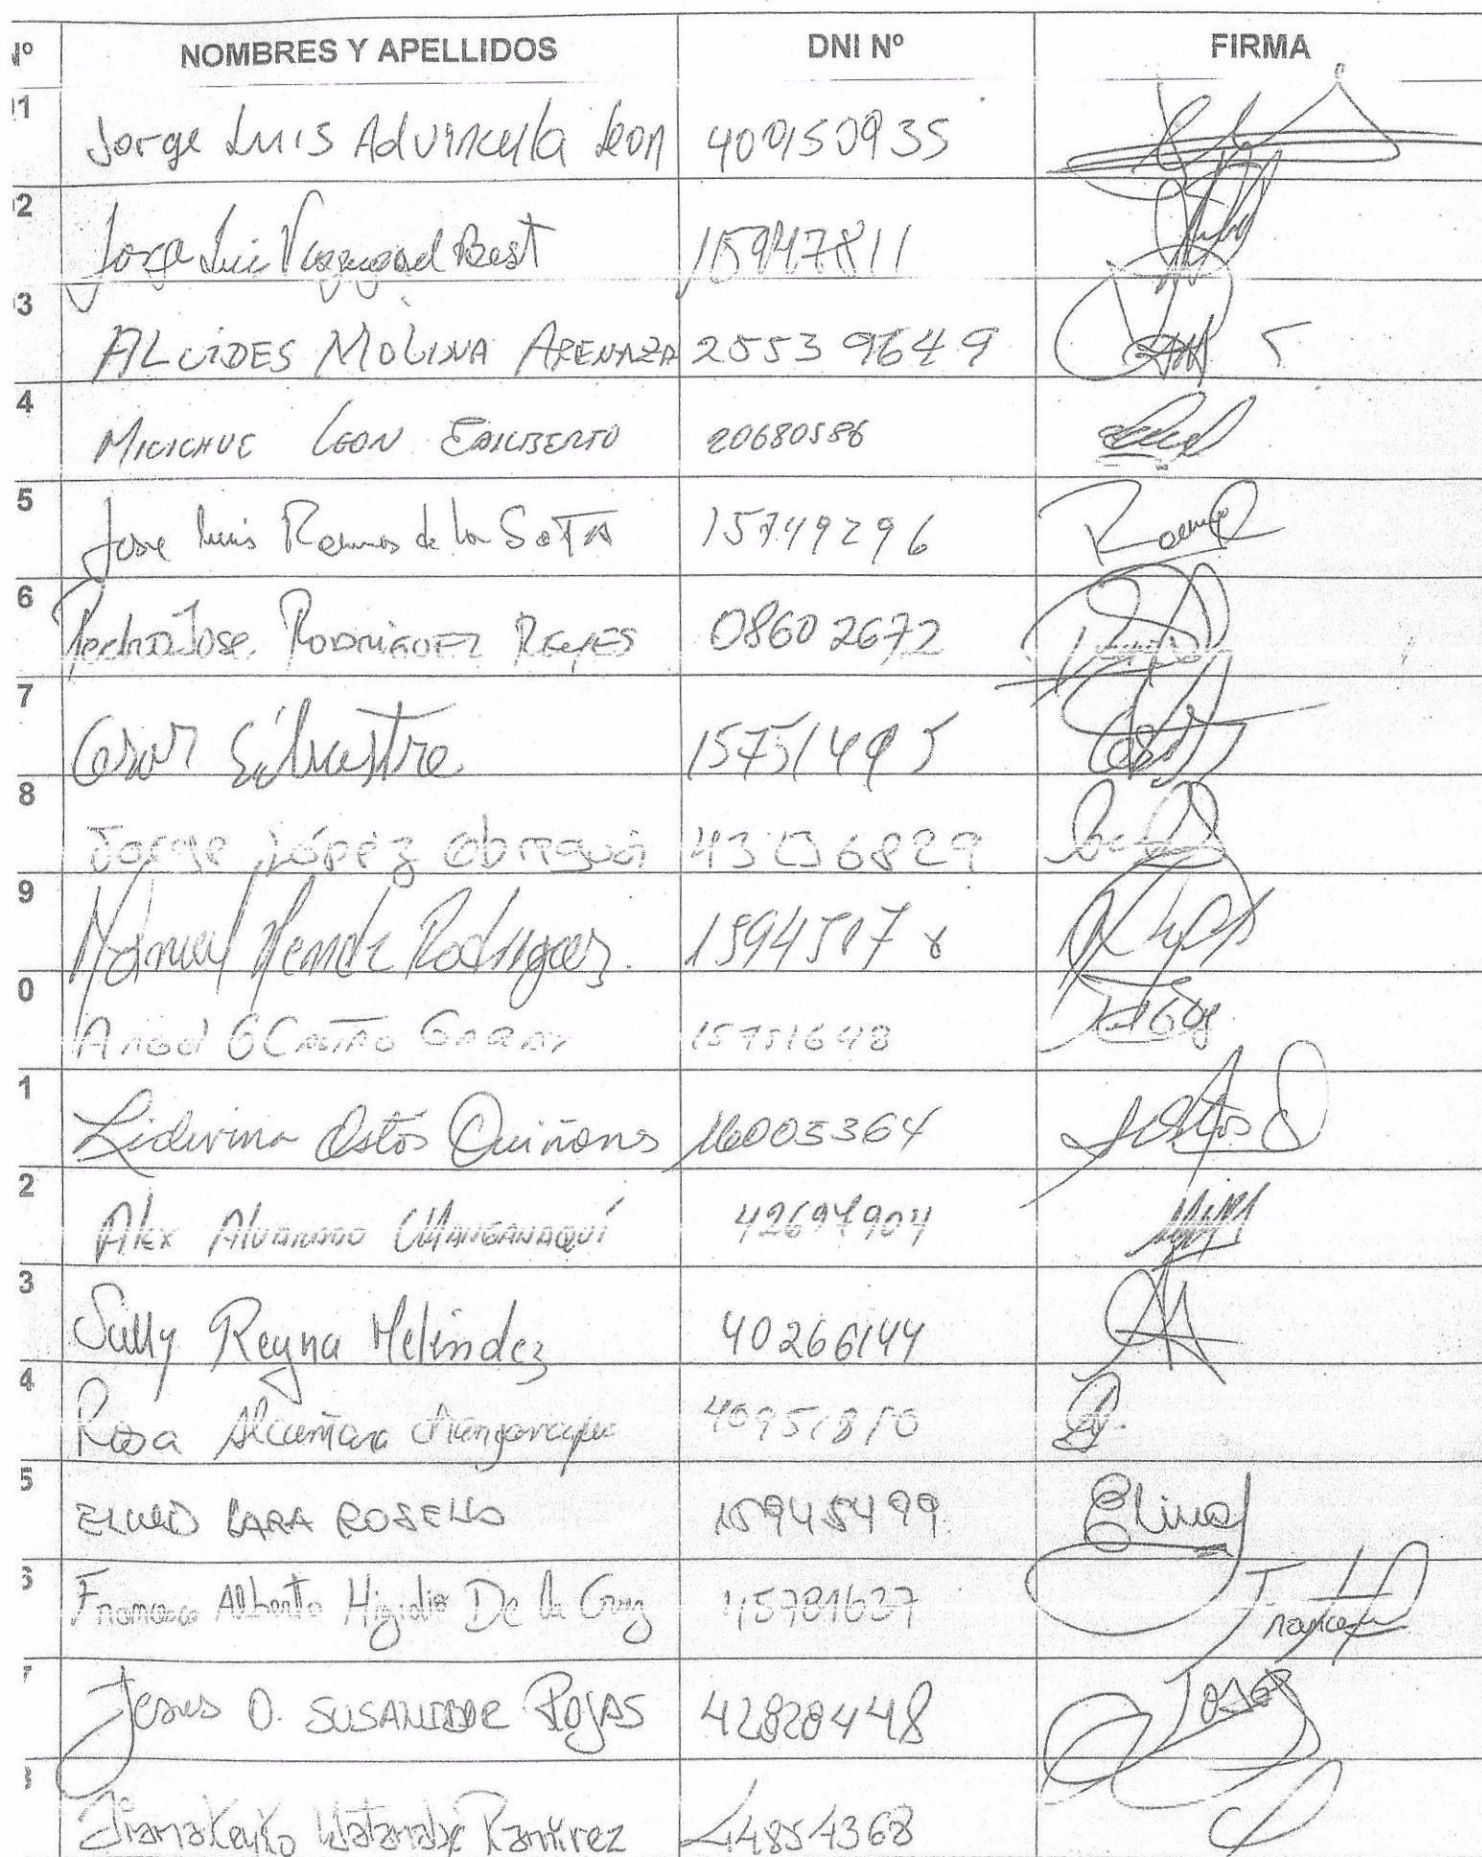 Nº NOMBRES Y APELLIDOS DNI Nº FIRMA
01 Jorge Luis Advincula Leon 400950935
02 Jorge Luis Best 15947811
03 ALCIDES MOLINA ARENAZA 25539649
4 LEON EDILBERTO 20680586
5 Jose Luis Ramos de la SOTA 15749296
6 Pedro Jose RODRIGUEZ REYES 08602672
7 Cesar Silvestre 15751495
8 Jorge López Obregon 6829
9 Manuel Rodriguez
0 Angel CASTRO GARAY
1 Liduvina Ostos Quiñones 16005364
2 Alex ALVARADO CHANGANAQUÍ 42697904
3 Sully Reyna Melendez 40266144
4 Rosa Alcantara 40951810
5 LARA ROSELLO 15945499
6 Francisco Alberto Higidio De la Cruz
7 Jesus O. ROJAS 42828448
8 Diana Keyko Watanabe Ramirez 44854368